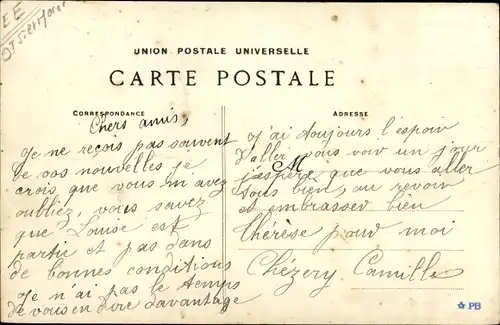 EE
UNION POSTALE UNIVERSELLE
CARTE POSTALE
CORRESPONDANCE
Chers amis,
Je ne reçois pas souvent
de vos nouvelles je
crois que vous m'avez
oubliez, vous savez
que Louise est
partie et pas dans
de bonnes conditions
Je n'ai pas le temps
de vous en dire davantage
ADRESSE
M
J'ai toujours l'espoir
d'aller vous voir un jour
j'espère que vous aller
tous bien, au revoir
et embrasser bien
thérèse pour moi
Chézery Camille
PB